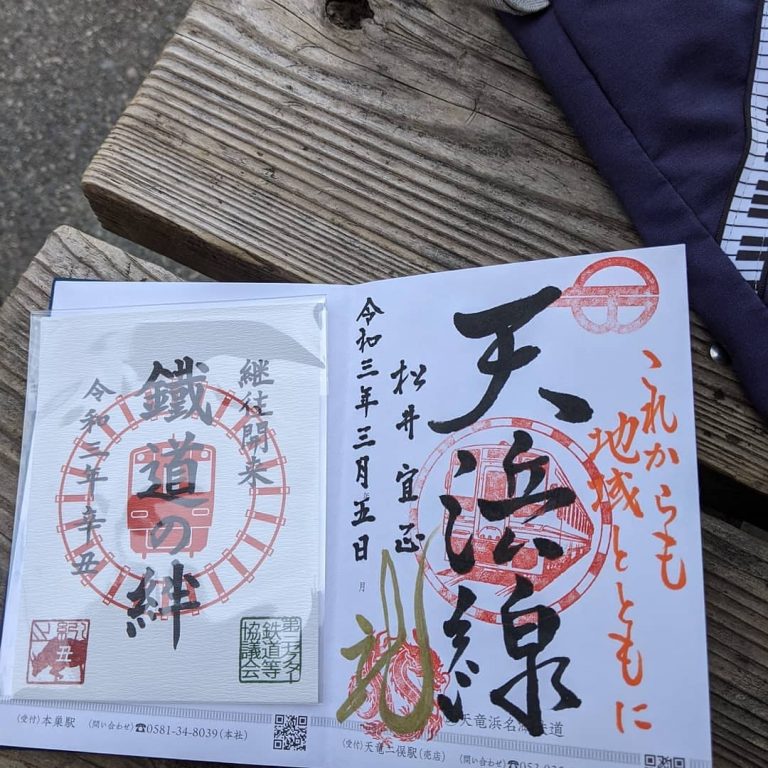 これからも
地域とともに
天浜線
松井宜正
令和三年三月五日
月
天竜浜名湖鉄道
(受付)天竜二俣駅(売店)
継往開来
鐵道の絆
令和三年辛丑
第三セクター
鉄道等
協議会
丑
(受付)本巣駅 (問い合わせ)☎0581-34-8039(本社)